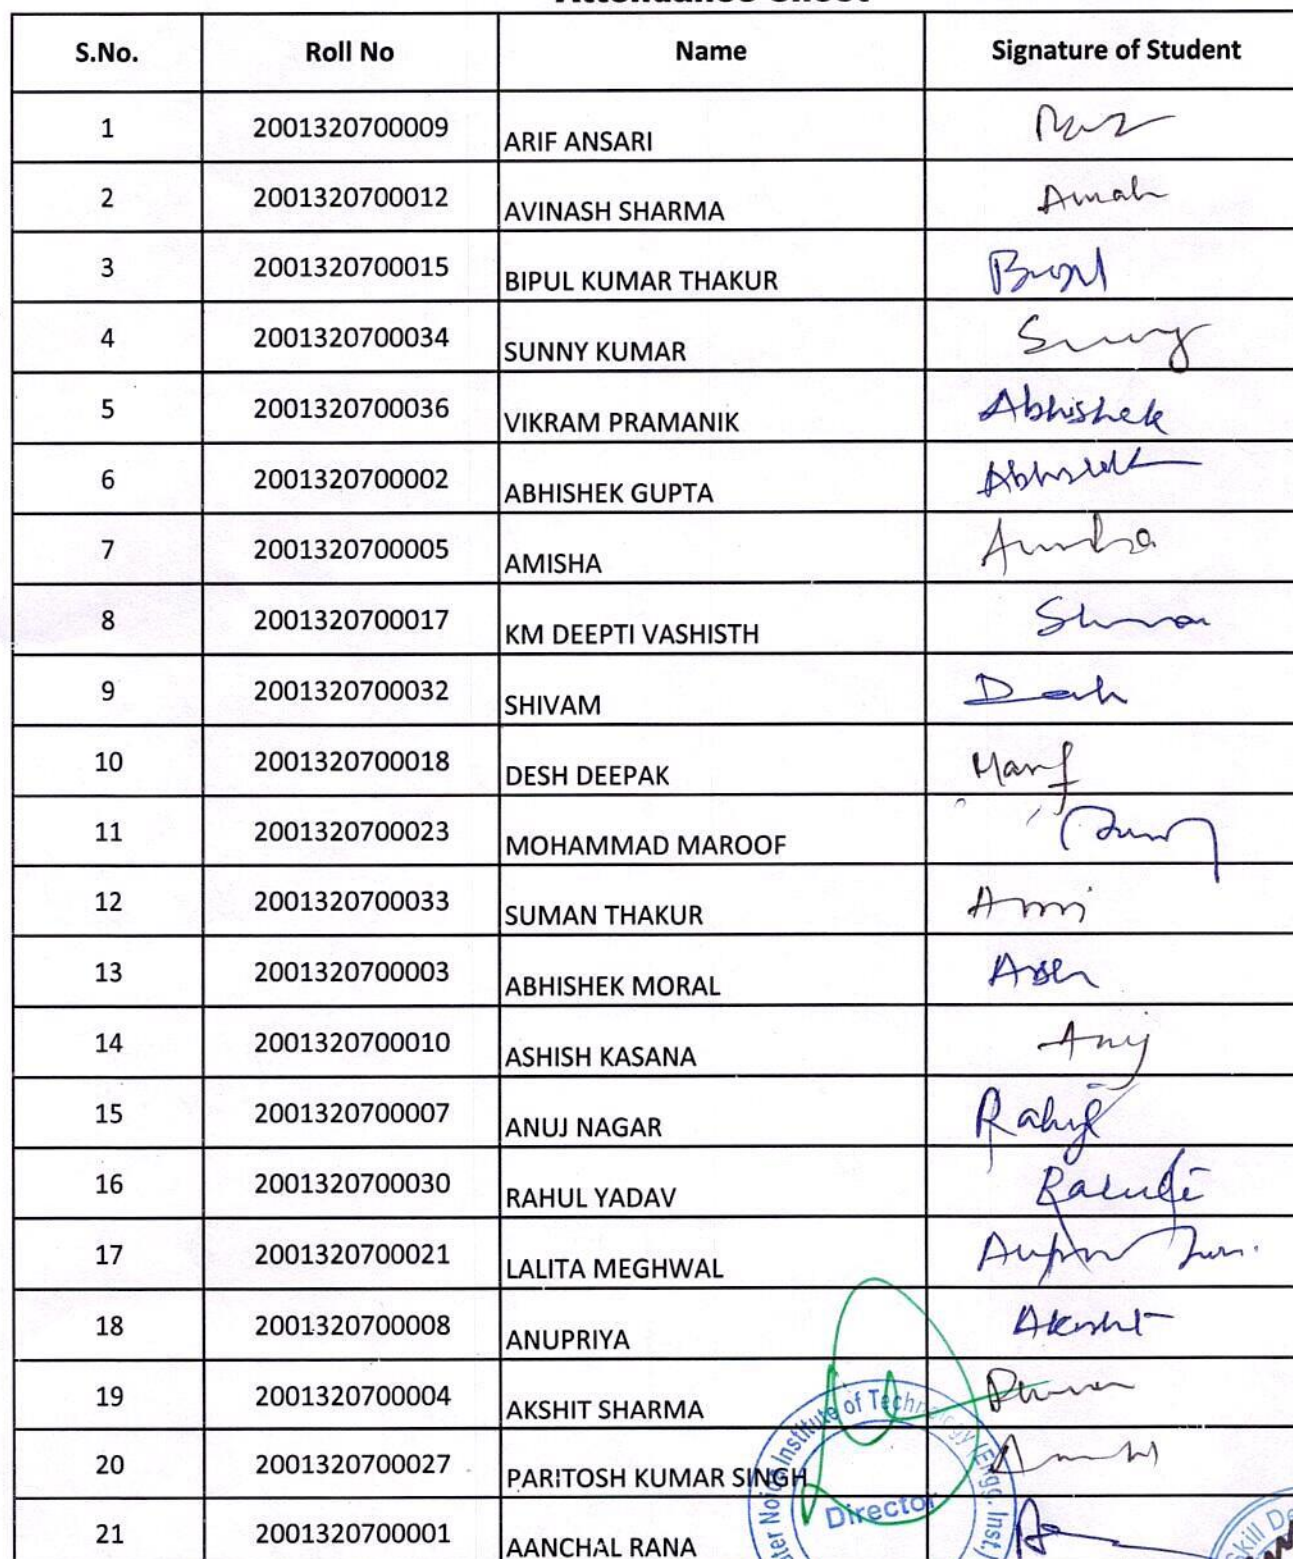 Attendance Sheet
S.No. Roll No Name Signature of Student
1 2001320700009 ARIF ANSARI
2 2001320700012 AVINASH SHARMA
3 2001320700015 BIPUL KUMAR THAKUR
4 2001320700034 SUNNY KUMAR Sunny
5 2001320700036 VIKRAM PRAMANIK Abhishek
6 2001320700002 ABHISHEK GUPTA
7 2001320700005 AMISHA
8 2001320700017 KM DEEPTI VASHISTH
9 2001320700032 SHIVAM
10 2001320700018 DESH DEEPAK
11 2001320700023 MOHAMMAD MAROOF
12 2001320700033 SUMAN THAKUR
13 2001320700003 ABHISHEK MORAL
14 2001320700010 ASHISH KASANA Anuj
15 2001320700007 ANUJ NAGAR Rahul
16 2001320700030 RAHUL YADAV
17 2001320700021 LALITA MEGHWAL
18 2001320700008 ANUPRIYA Akshit
19 2001320700004 AKSHIT SHARMA
20 2001320700027 PARITOSH KUMAR SINGH
21 2001320700001 AANCHAL RANA
Institute of Technology (Engg. Inst.)
Director